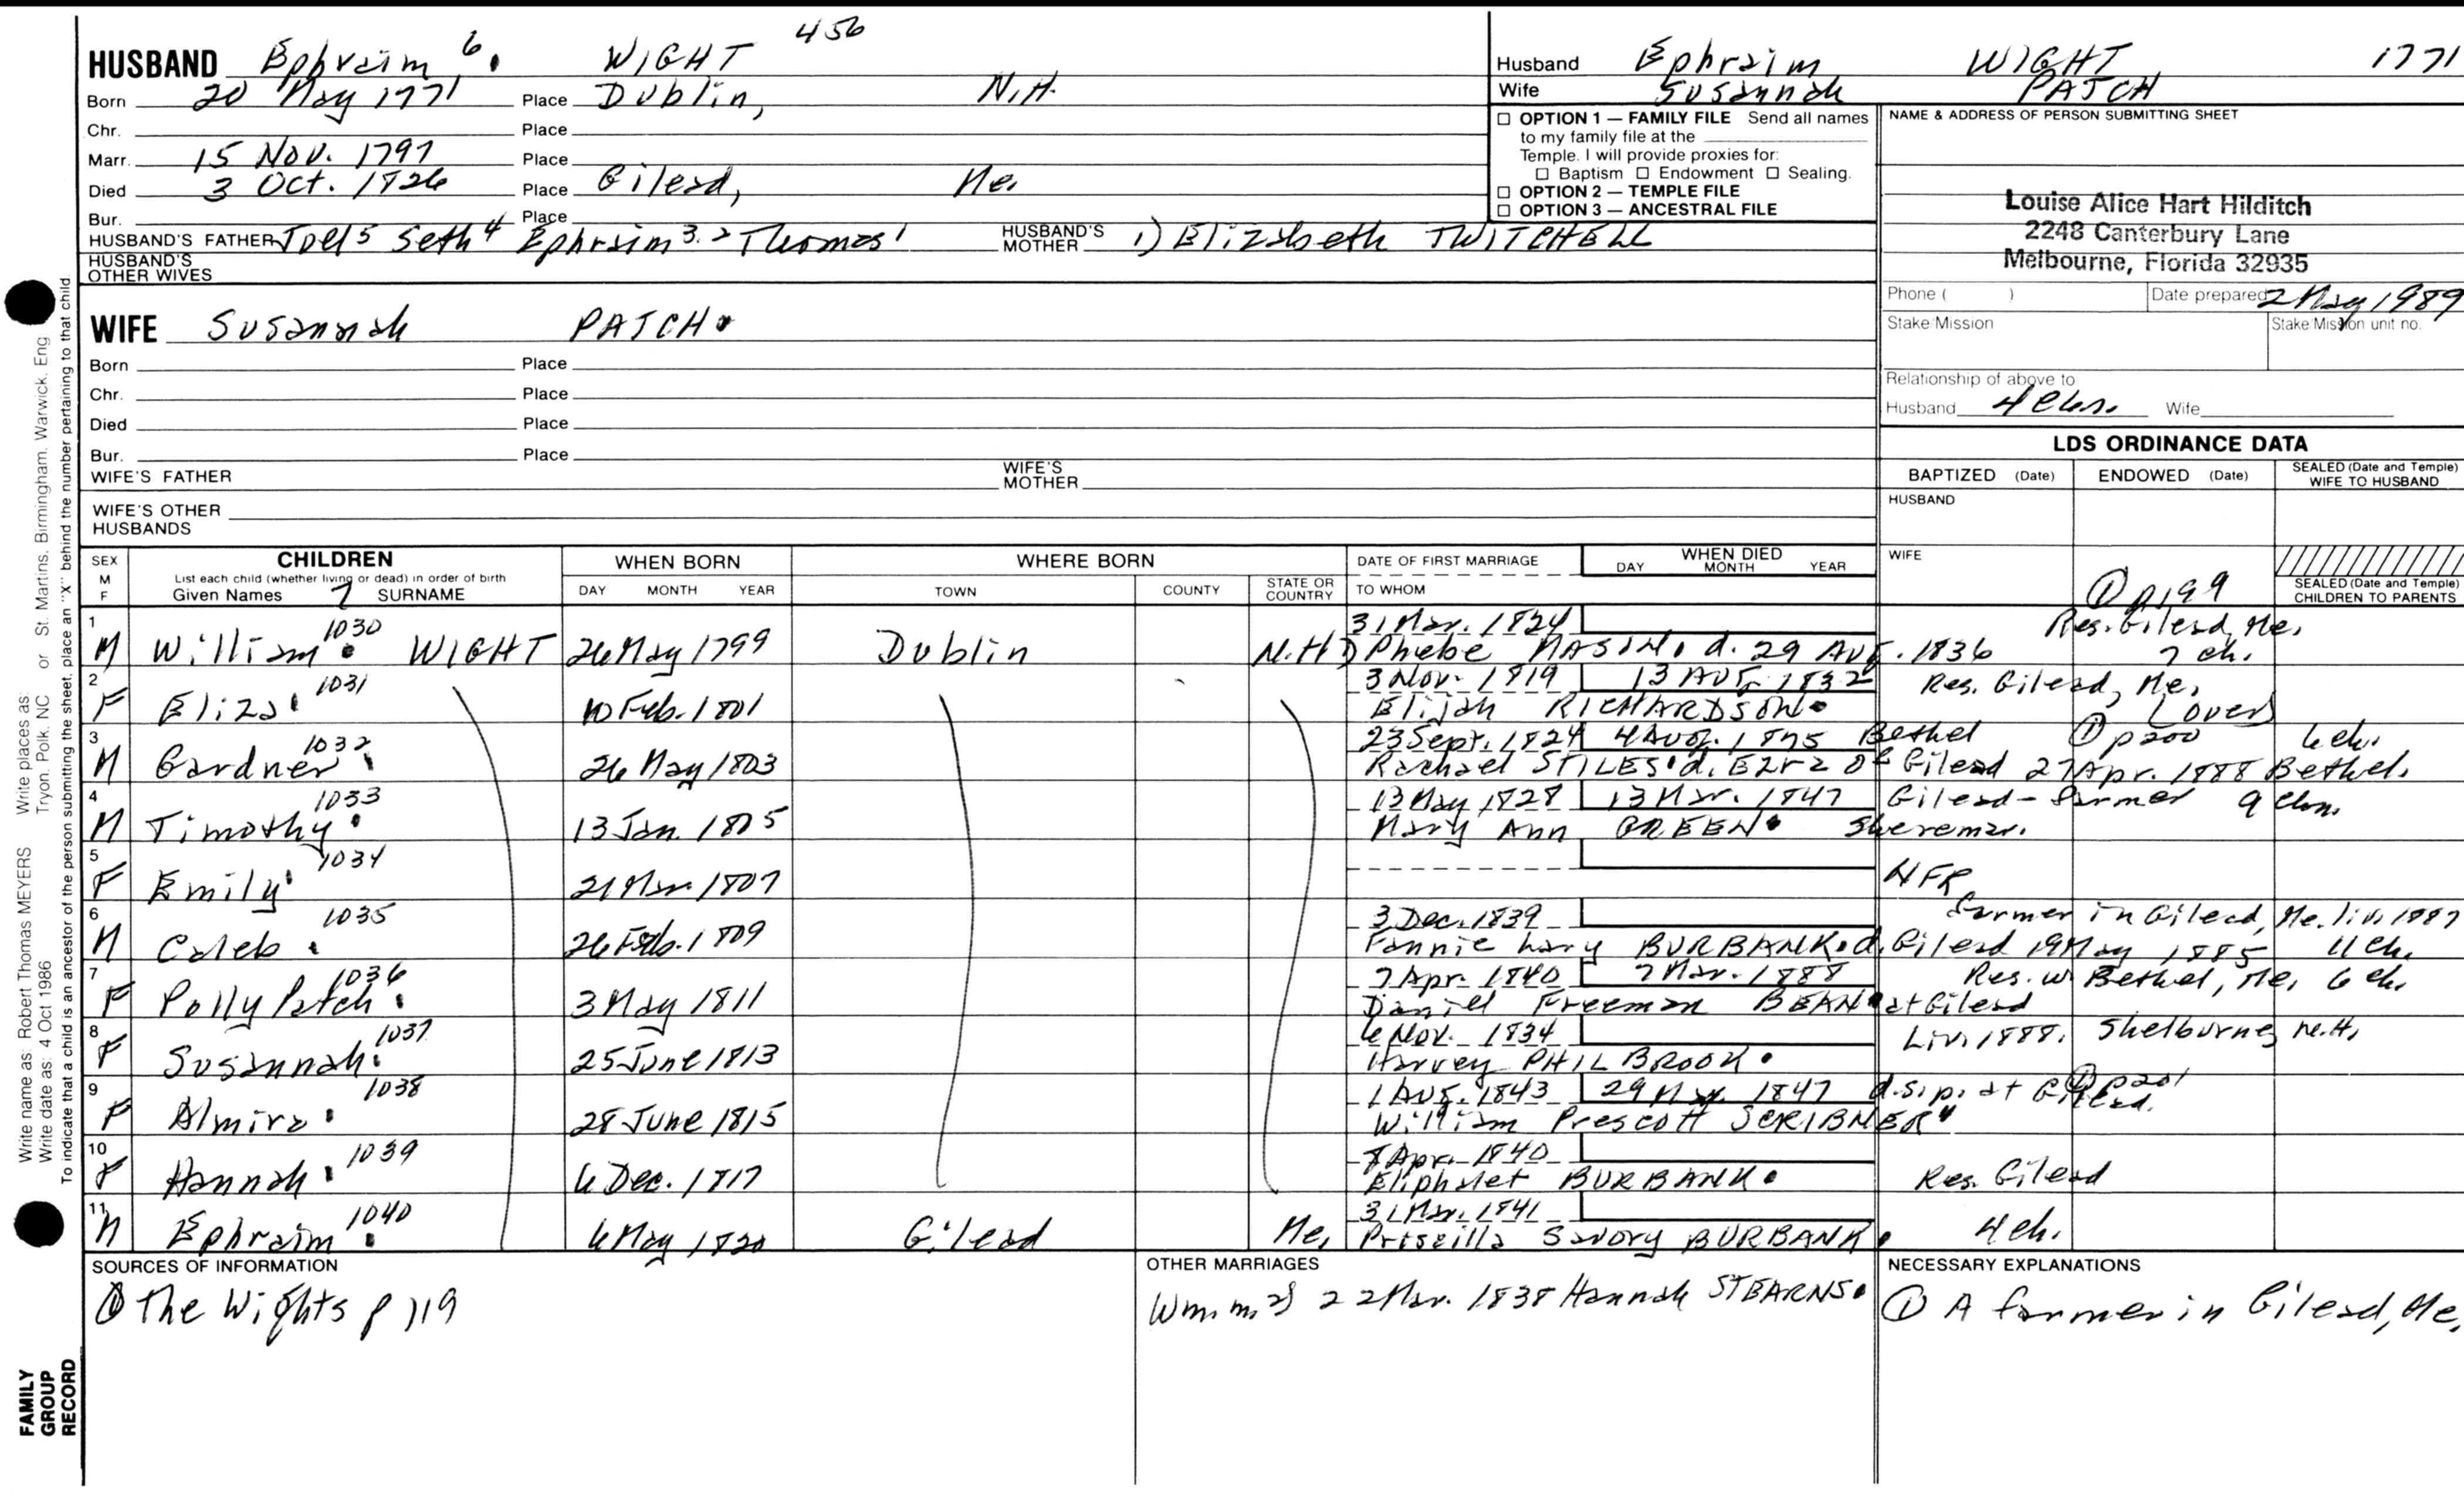 456
HUSBAND Ephraim 6. WIGHT
Born 20 May 1771 Place Dublin, N.H.
Chr. Place
Marr. 15 Nov. 1797 Place
Died 3 Oct. 1826 Place Gilead, Me.
Bur. Place
HUSBAND'S FATHER Joel 5 Seth 4 Ephraim 3. 2 Thomas 1 HUSBAND'S MOTHER 1) Elizabeth TWITCHELL
HUSBAND'S OTHER WIVES
WIFE Susannah PATCH
Born Place
Chr. Place
Died Place
Bur. Place
WIFE'S FATHER WIFE'S MOTHER
WIFE'S OTHER HUSBANDS
Husband Ephraim WIGHT 1771
Wife Susannah PATCH
☐ OPTION 1 — FAMILY FILE Send all names
to my family file at the
Temple. I will provide proxies for:
☐ Baptism ☐ Endowment ☐ Sealing.
☐ OPTION 2 — TEMPLE FILE
☐ OPTION 3 — ANCESTRAL FILE
NAME & ADDRESS OF PERSON SUBMITTING SHEET
Louise Alice Hart Hilditch
2248 Canterbury Lane
Melbourne, Florida 32935
Phone ( ) Date prepared 2 May 1989
Stake/Mission Stake/Mission unit no.
Relationship of above to
Husband 4 chn. Wife
LDS ORDINANCE DATA
BAPTIZED (Date) ENDOWED (Date) SEALED (Date and Temple) WIFE TO HUSBAND
HUSBAND
WIFE
SEALED (Date and Temple) CHILDREN TO PARENTS
SEX M F
CHILDREN
List each child (whether living or dead) in order of birth
Given Names 7 SURNAME
WHEN BORN
DAY MONTH YEAR
WHERE BORN
TOWN COUNTY STATE OR COUNTRY
DATE OF FIRST MARRIAGE
TO WHOM
WHEN DIED
DAY MONTH YEAR
① p199
1 1030 31 Mar. 1824 Res. Gilead, Me.
M William WIGHT 26 May 1799 Dublin N.H. Phebe MASON d. 29 Aug. 1836 7 ch.
2 1031 3 Nov. 1819 13 Aug 1832 Res. Gilead, Me.
F Eliza 10 Feb. 1801 Elijah RICHARDSON (over)
3 1032 23 Sept. 1824 4 Aug. 1875 Bethel ① p200 6 ch.
M Gardner 26 May 1803 Rachael STILES d. Ezra of Gilead 27 Apr. 1888 Bethel.
4 1033 13 May 1828 13 Mar. 1847 Gilead - farmer 9 chn.
M Timothy 13 Jan. 1805 Mary Ann GREEN
5 1034
F Emily 21 Mar 1807 NFR
6 1035 3 Dec. 1839 farmer in Gilead, Me. liv. 1887
M Caleb 26 Feb. 1809 Fannie Lary BURBANK d. Gilead 19 May 1885 11 ch.
7 1036 7 Apr. 1840 7 Mar. 1888 Res. W Bethel, Me. 6 ch.
F Polly Patch 3 May 1811 Daniel Freeman BEAN at Gilead
8 1037 6 Nov. 1834 Liv. 1888. Shelburne, N.H.
F Susannah 25 June 1813 Harvey PHILBROOK
9 1038 1 Aug. 1843 29 1847 d.s.p. at Gilead. ① p201
F Almira 28 June 1815 William Prescott SCRIBNER
10 1039 8 Apr. 1840
F Hannah 6 Dec. 1817 Eliphalet BURBANK Res. Gilead
11 1040 31 Mar. 1841
M Ephraim 6 May 1820 Gilead Me. Priscilla Savory BURBANK 4 ch.
SOURCES OF INFORMATION
① The Wights p 119
OTHER MARRIAGES
Wm. m. 2) 22 Mar. 1838 Hannah STEARNS
NECESSARY EXPLANATIONS
① A farmer in Gilead, Me.
Write name as: Robert Thomas MEYERS Write places as: Tryon, Polk, NC or St. Martins, Birmingham, Warwick, Eng
Write date as: 4 Oct 1986
To indicate that a child is an ancestor of the person submitting the sheet, place an "X" behind the number pertaining to that child.
FAMILY
GROUP
RECORD